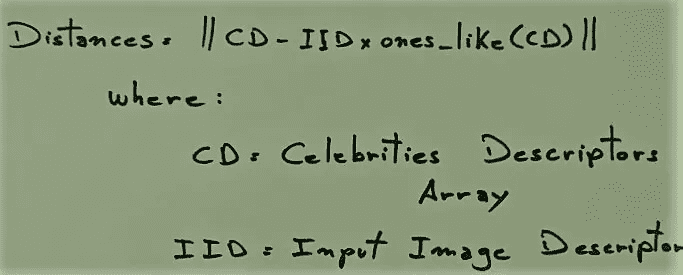 Distances = || CD - IID x ones_like(CD) ||
where :
CD = Celebrities Descriptors
Array
IID = Input Image Descriptor